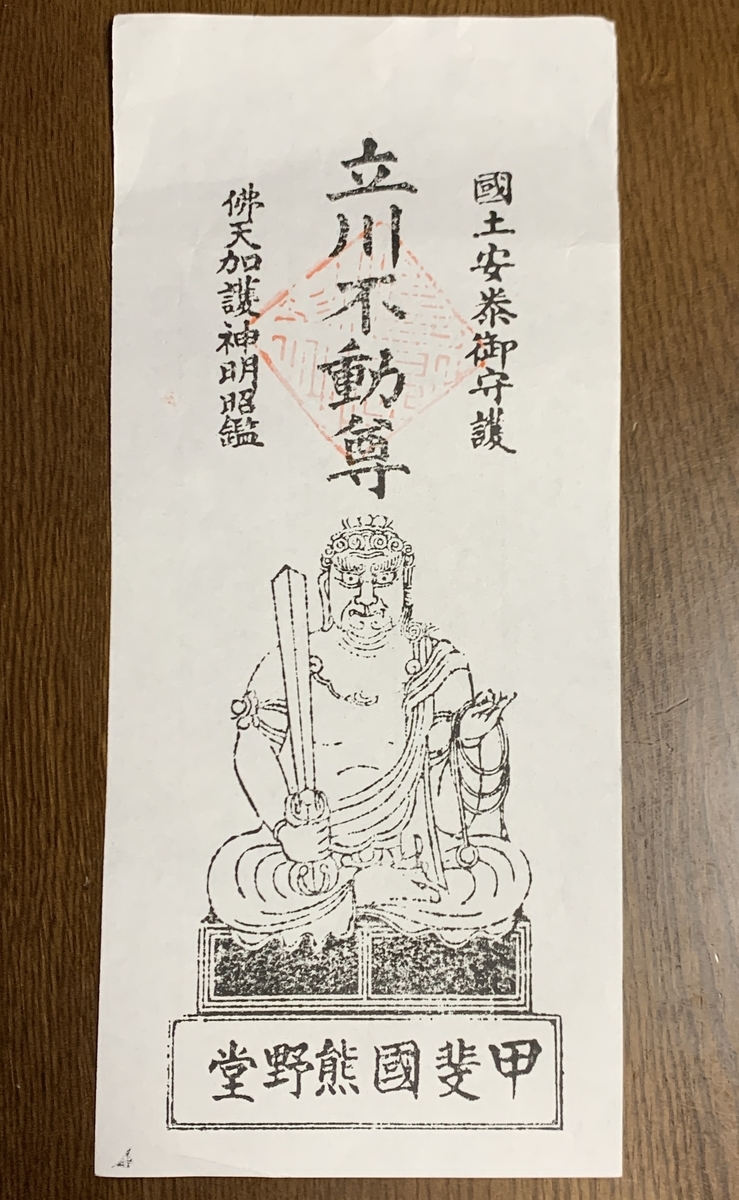 國土安泰御守護
立川不動尊
佛天加護神明昭鑑
甲斐國熊野堂